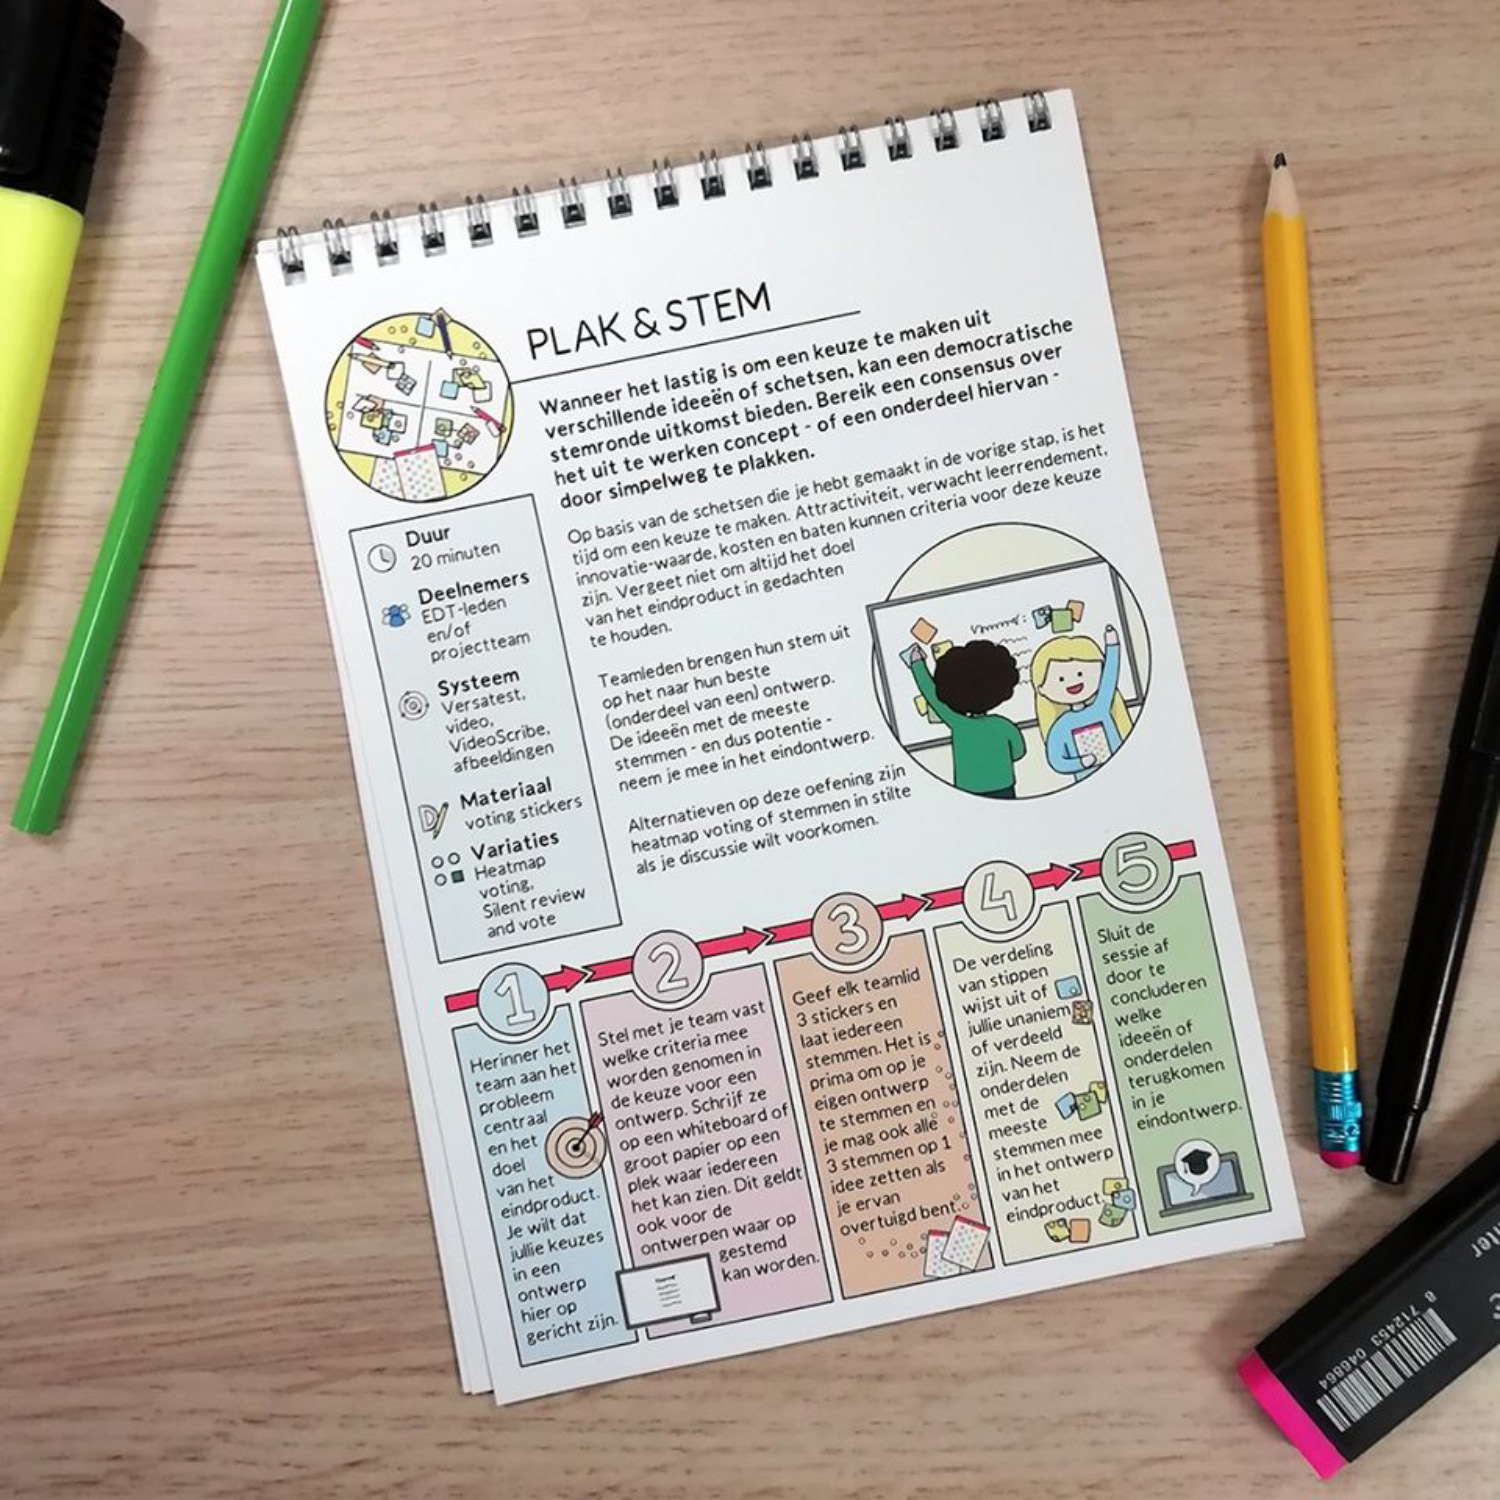 PLAK & STEM
Wanneer het lastig is om een keuze te maken uit
verschillende ideeën of schetsen, kan een democratische
stemronde uitkomst bieden. Bereik een consensus over
het uit te werken concept - of een onderdeel hiervan -
door simpelweg te plakken.
Op basis van de schetsen die je hebt gemaakt in de vorige stap, is het
tijd om een keuze te maken. Attractiviteit, verwacht leerrendement,
innovatie-waarde, kosten en baten kunnen criteria voor deze keuze
zijn. Vergeet niet om altijd het doel
van het eindproduct in gedachten
te houden.
Teamleden brengen hun stem uit
op het naar hun beste
(onderdeel van een) ontwerp.
De ideeën met de meeste
stemmen - en dus potentie -
neem je mee in het eindontwerp.
Alternatieven op deze oefening zijn
heatmap voting of stemmen in stilte
als je discussie wilt voorkomen.
Duur
20 minuten
Deelnemers
EDT-leden
en/of
projectteam
Systeem
Versatest,
video,
VideoScribe,
afbeeldingen
Materiaal
voting stickers
Variaties
Heatmap
voting,
Silent review
and vote
1
Herinner het
team aan het
probleem
centraal
en het
doel
van het
eindproduct.
Je wilt dat
jullie keuzes
in een
ontwerp
hier op
gericht zijn.
2
Stel met je team vast
welke criteria mee
worden genomen in
de keuze voor een
ontwerp. Schrijf ze
op een whiteboard of
groot papier op een
plek waar iedereen
het kan zien. Dit geldt
ook voor de
ontwerpen waar op
gestemd
kan worden.
3
Geef elk teamlid
3 stickers en
laat iedereen
stemmen. Het is
prima om op je
eigen ontwerp
te stemmen en
je mag ook alle
3 stemmen op 1
idee zetten als
je ervan
overtuigd bent.
4
De verdeling
van stippen
wijst uit of
jullie unaniem
of verdeeld
zijn. Neem de
onderdelen
met de
meeste
stemmen mee
in het ontwerp
van het
eindproduct.
5
Sluit de
sessie af
door te
concluderen
welke
ideeën of
onderdelen
terugkomen
in je
eindontwerp.
8 712453 046864